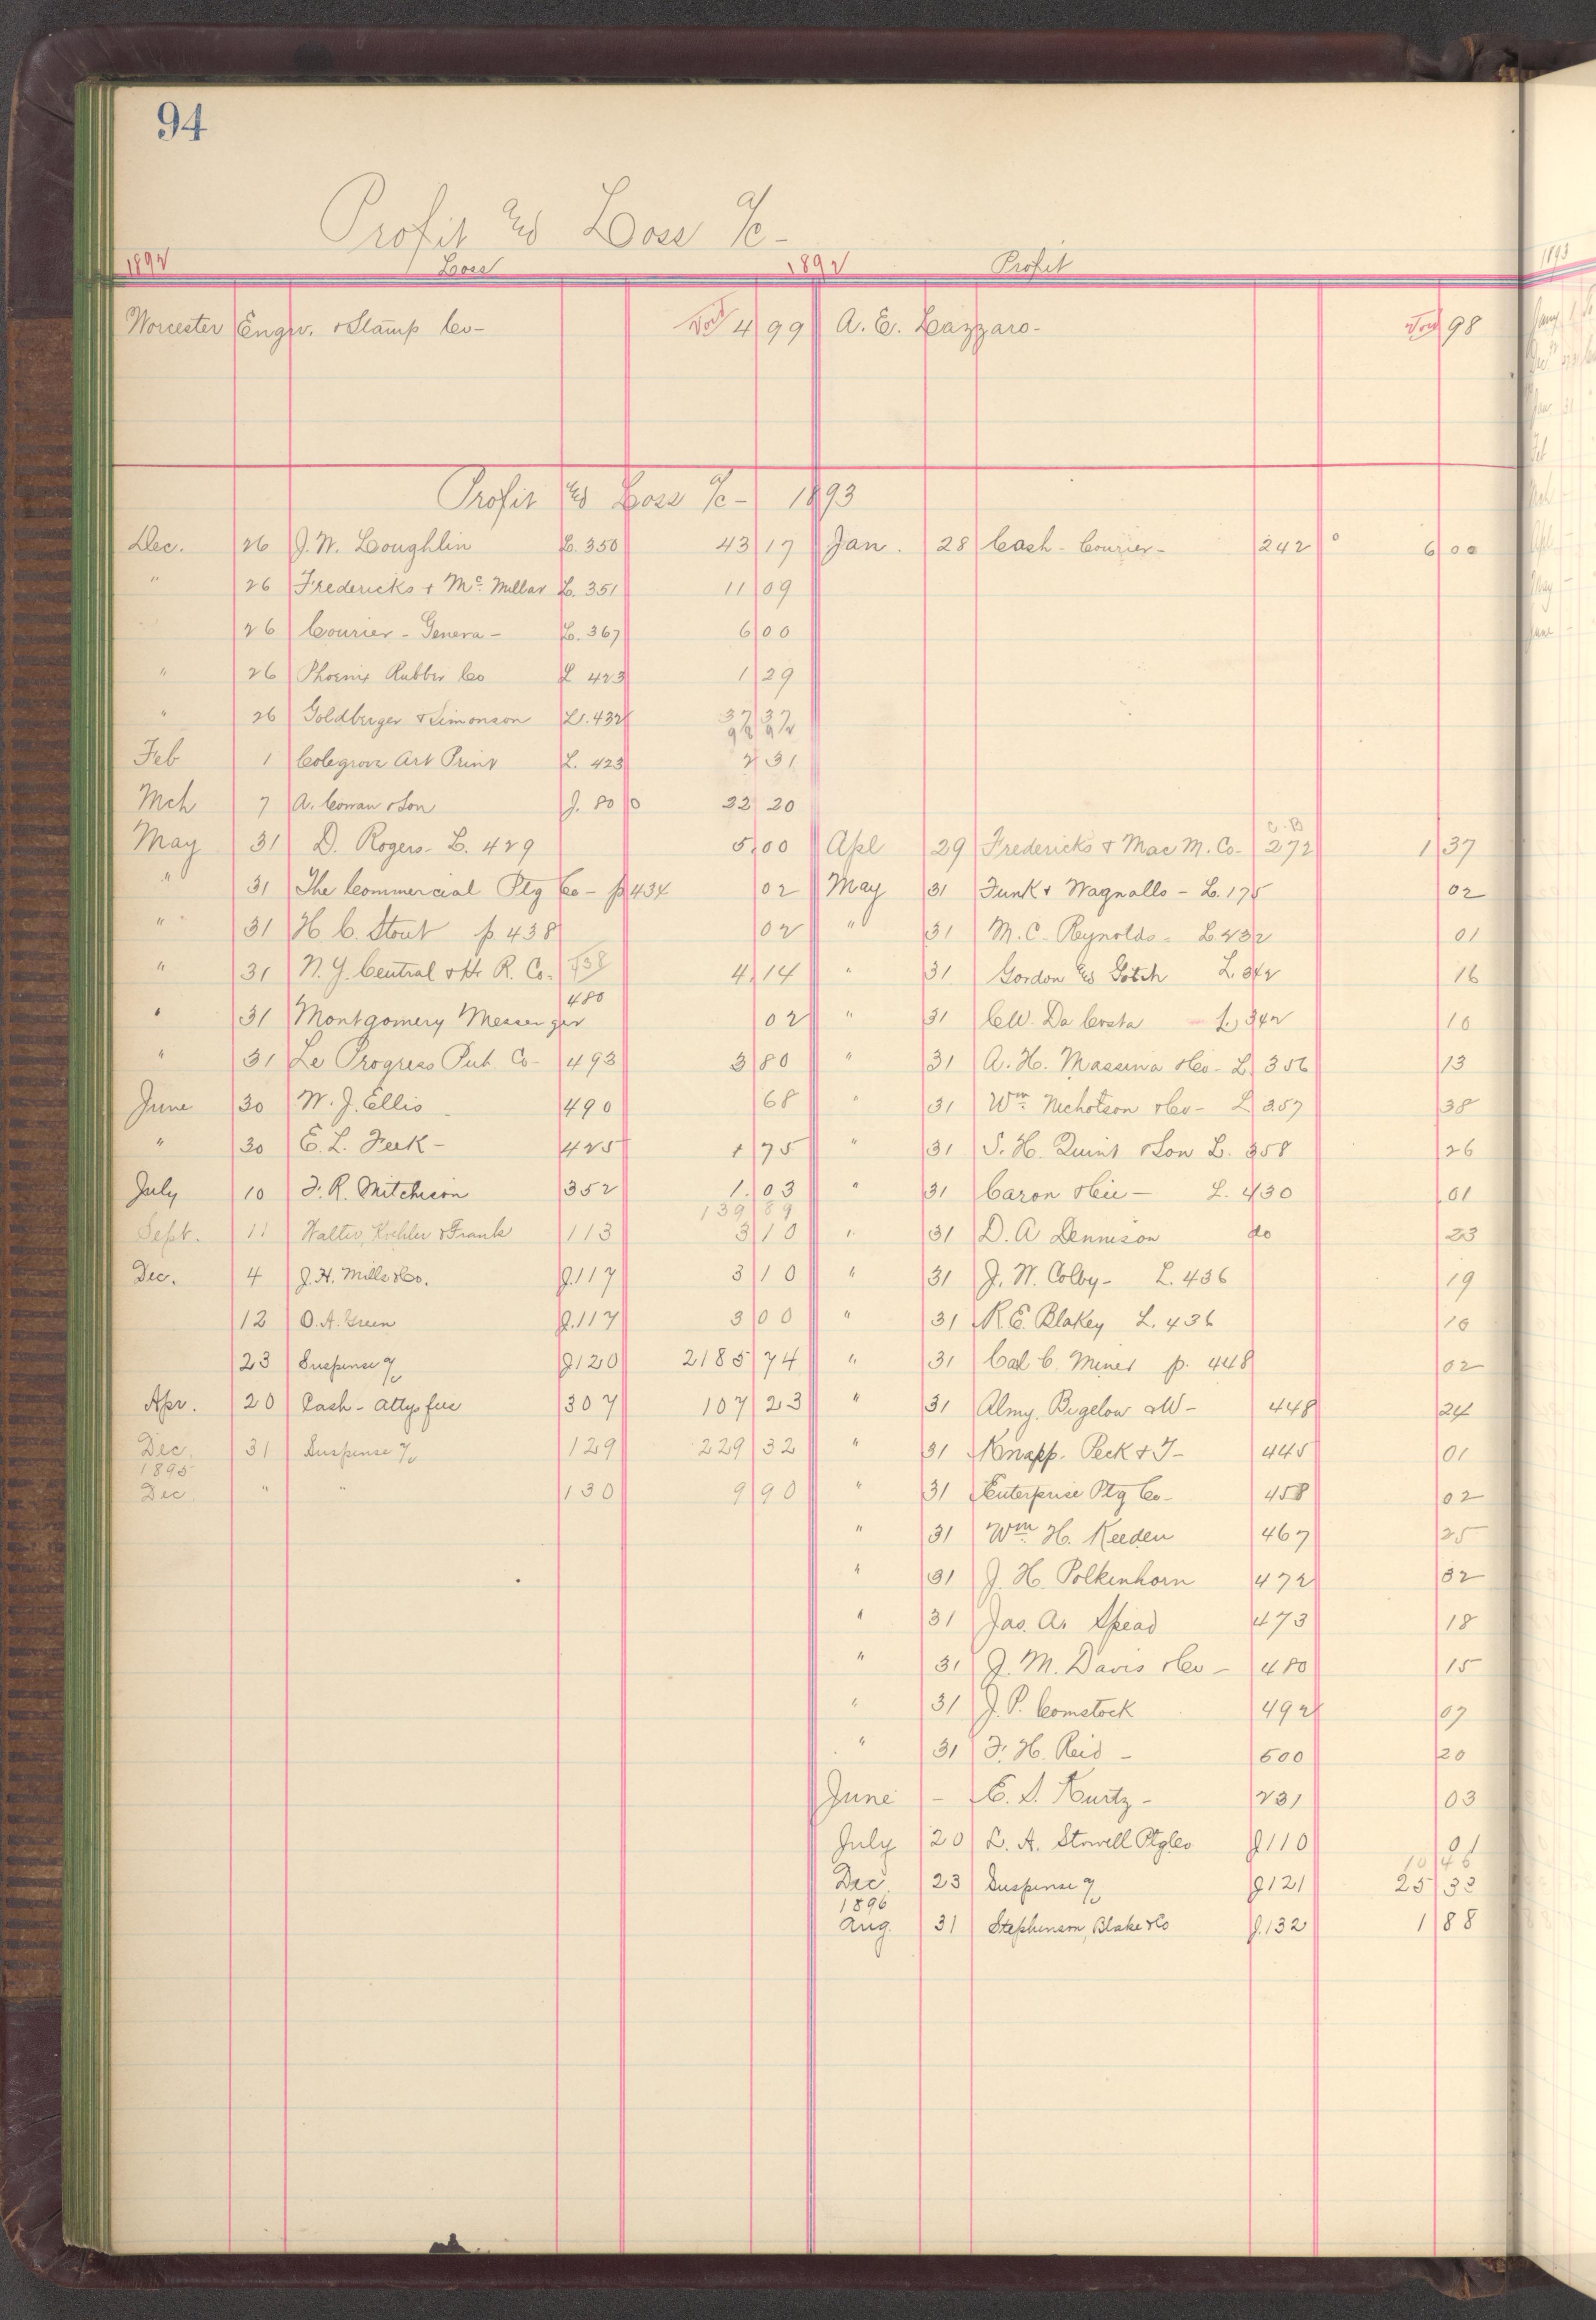 94
Profit & Loss a/c-
1892 Loss 1892 Profit
Worcester Engrv. & Stamp Co- 4 99 A. E. Lazzaro- 98
Profit & Loss a/c- 1893
Dec. 26 J. W. Loughlin L. 350 43 17 Jan. 28 Cash - Courier- 242 6 00
" 26 Fredericks & Mc. Millar L. 351 11 09
26 Courier - Geneva - L. 367 6 00
" 26 Phoenix Rubber Co L 423 1 29
" 26 Goldberger & Simonson L. 432 37 37
Feb 1 Colegrove Art Print L. 423 2 31
Mch 7 A. Cowan & Son J. 80 22 20
May 31 D. Rogers- L. 429 5 00 Apl 29 Fredericks & Mac M. Co- C.B 272 1 37
" 31 The Commercial Ptg Co- p 434 02 May 31 Funk & Wagnalls - L. 175 02
" 31 H. C. Stout p. 438 02 " 31 M. C. Reynolds - L. 432 01
" 31 N. Y. Central & H. R. Co. 4 14 " 31 Gordon & Gotch L 342 16
" 31 Montgomery Messenger 480 02 " 31 C W. Da Costa - L. 342 10
" 31 Le Progress Pub. Co- 493 3 80 " 31 A. H. Massina & Co- L 356 13
June 30 W. J. Ellis 490 68 " 31 Wm. Nicholson & Co- L 357 38
" 30 E. L. Feek- 425 1 75 " 31 S. H. Quint & Son L. 358 26
July 10 F. R. Mitcheson 352 1.03 " 31 Caron & Cie - L. 430 01
139 89
Sept. 11 Walter, Koehler & Frank 113 3 10 " 31 D. A Dennison do 23
Dec. 4 J. H. Mills & Co. J.117 3 10 " 31 J. W. Colby- L. 436 19
12 O. A. Green J.117 3 00 " 31 R. E. Blakey L. 436 10
23 Suspense a/c J120 2185 74 " 31 Cal C. Miner p. 448 02
Apr. 20 Cash - attys fee 307 107 23 " 31 Almy, Bigelow & W- 448 24
Dec. 31 Suspense a/c 129 229 32 " 31 Knapp- Peck & T- 445 01
1895
Dec " " 130 9 90 " 31 Enterprise Ptg Co- 458 02
" 31 Wm. H. Keeden 467 25
" 31 J. H. Polkinhorn 472 02
" 31 Jas. A. Spead 473 18
" 31 J. M. Davis & Co- 480 15
" 31 J. P. Comstock 492 07
" 31 F. H. Reid - 500 20
June - E. S. Kurtz- 231 03
July 20 L. A. Stowell Ptg Co J110 01
10 46
Dec 23 Suspense a/c J121 25 33
1896
Aug. 31 Stephenson, Blake & Co J.132 1 88
1893